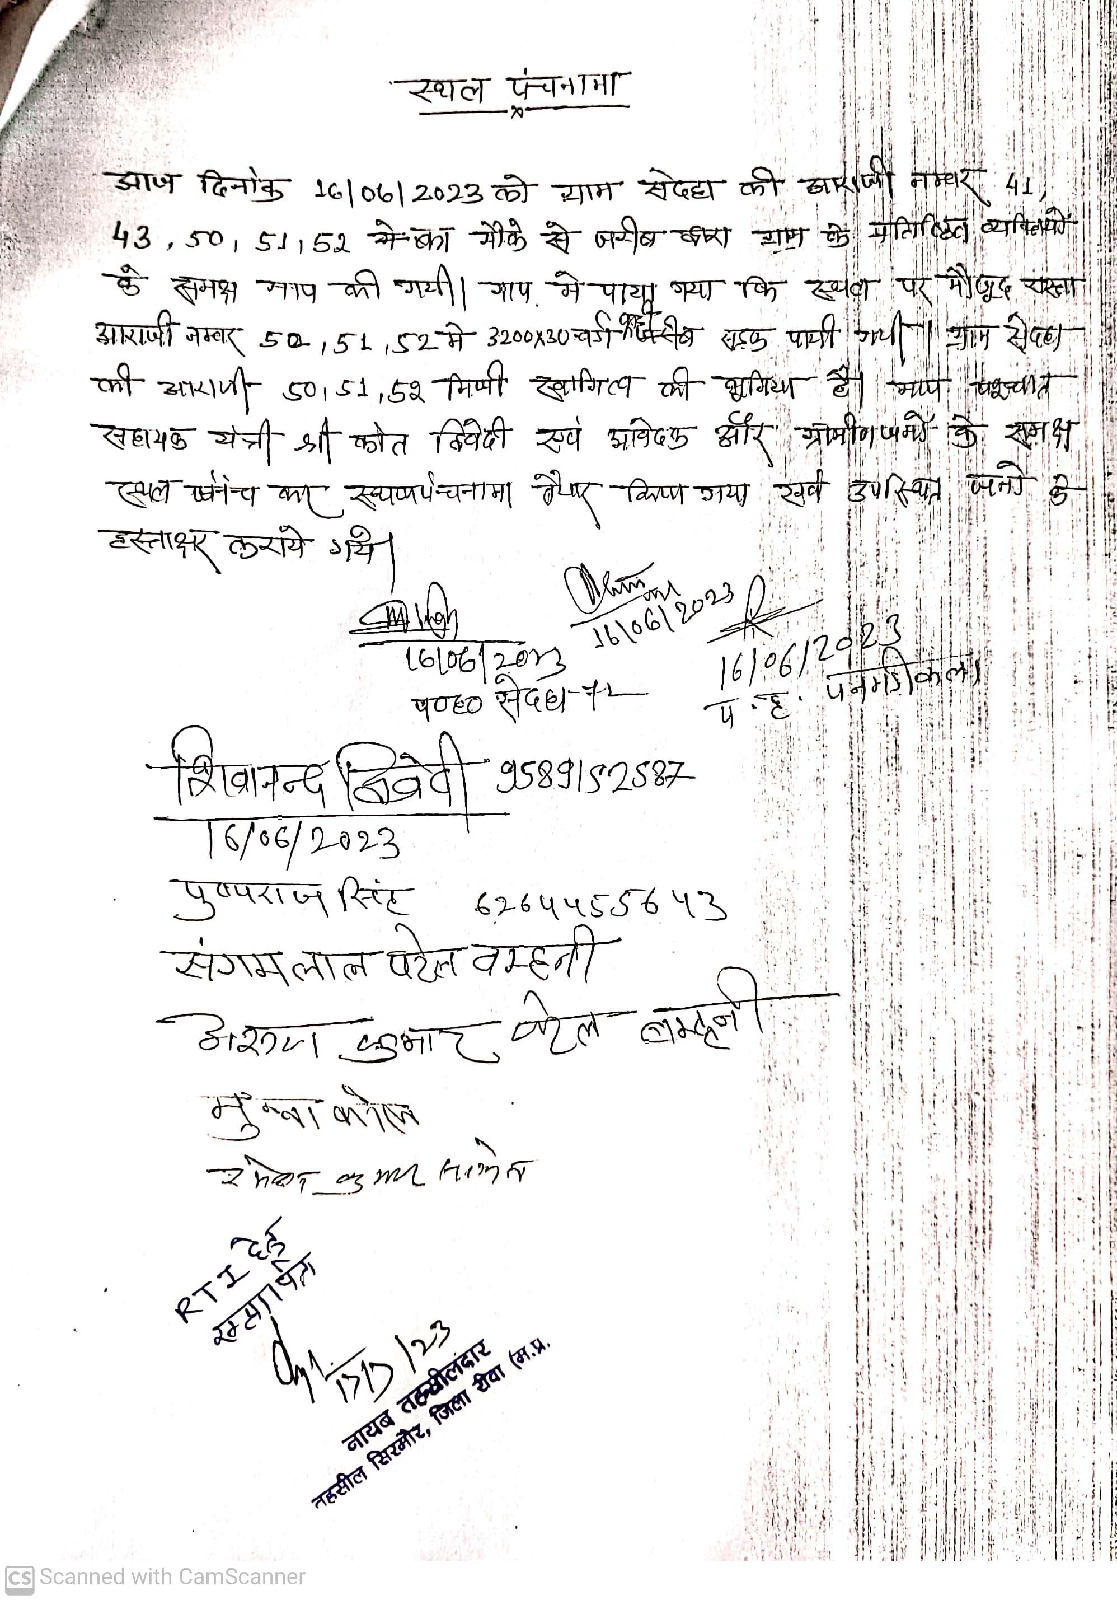 स्थल पंचनामा
आज दिनांक 16/06/2023 को ग्राम सेदहा की आराजी नम्बर 41,
43, 50, 51, 52 मे का मौके से जरीब द्वारा ग्राम के प्रतिष्ठित व्यक्तियों
के समक्ष माप की गयी। माप मे पाया गया कि स्थल पर मौजूद रास्ता
आराजी नम्बर 50, 51, 52 मे 3200x30 वर्ग फीट करीब सड़क पायी गयी। ग्राम सेदहा
की आराजी 50, 51, 52 निजी स्वामित्व की भूमिया है। माप पश्चात
सहायक यंत्री श्री द्विवेदी एवं आवेदक और ग्रामीणजनों के समक्ष
स्थल का स्थलपंचनामा तैयार किया गया एवं उपस्थित जनो के
हस्ताक्षर कराये गये।
16/06/2023
16/06/2023
16/06/2023
प०ह० सेदहा-72
प.ह. पनगडीकला
शिवानन्द द्विवेदी 9589152587
16/06/2023
पुष्पराज सिंह 6264455643
संगमलाल पटेल बम्हनी
अरुण कुमार पटेल बम्हनी
मुन्ना कोल
कुमार साकेत
RTI हेतु
सत्यापित
नायब तहसीलदार
तहसील सिरमौर, जिला रीवा (म.प्र.
CS Scanned with CamScanner